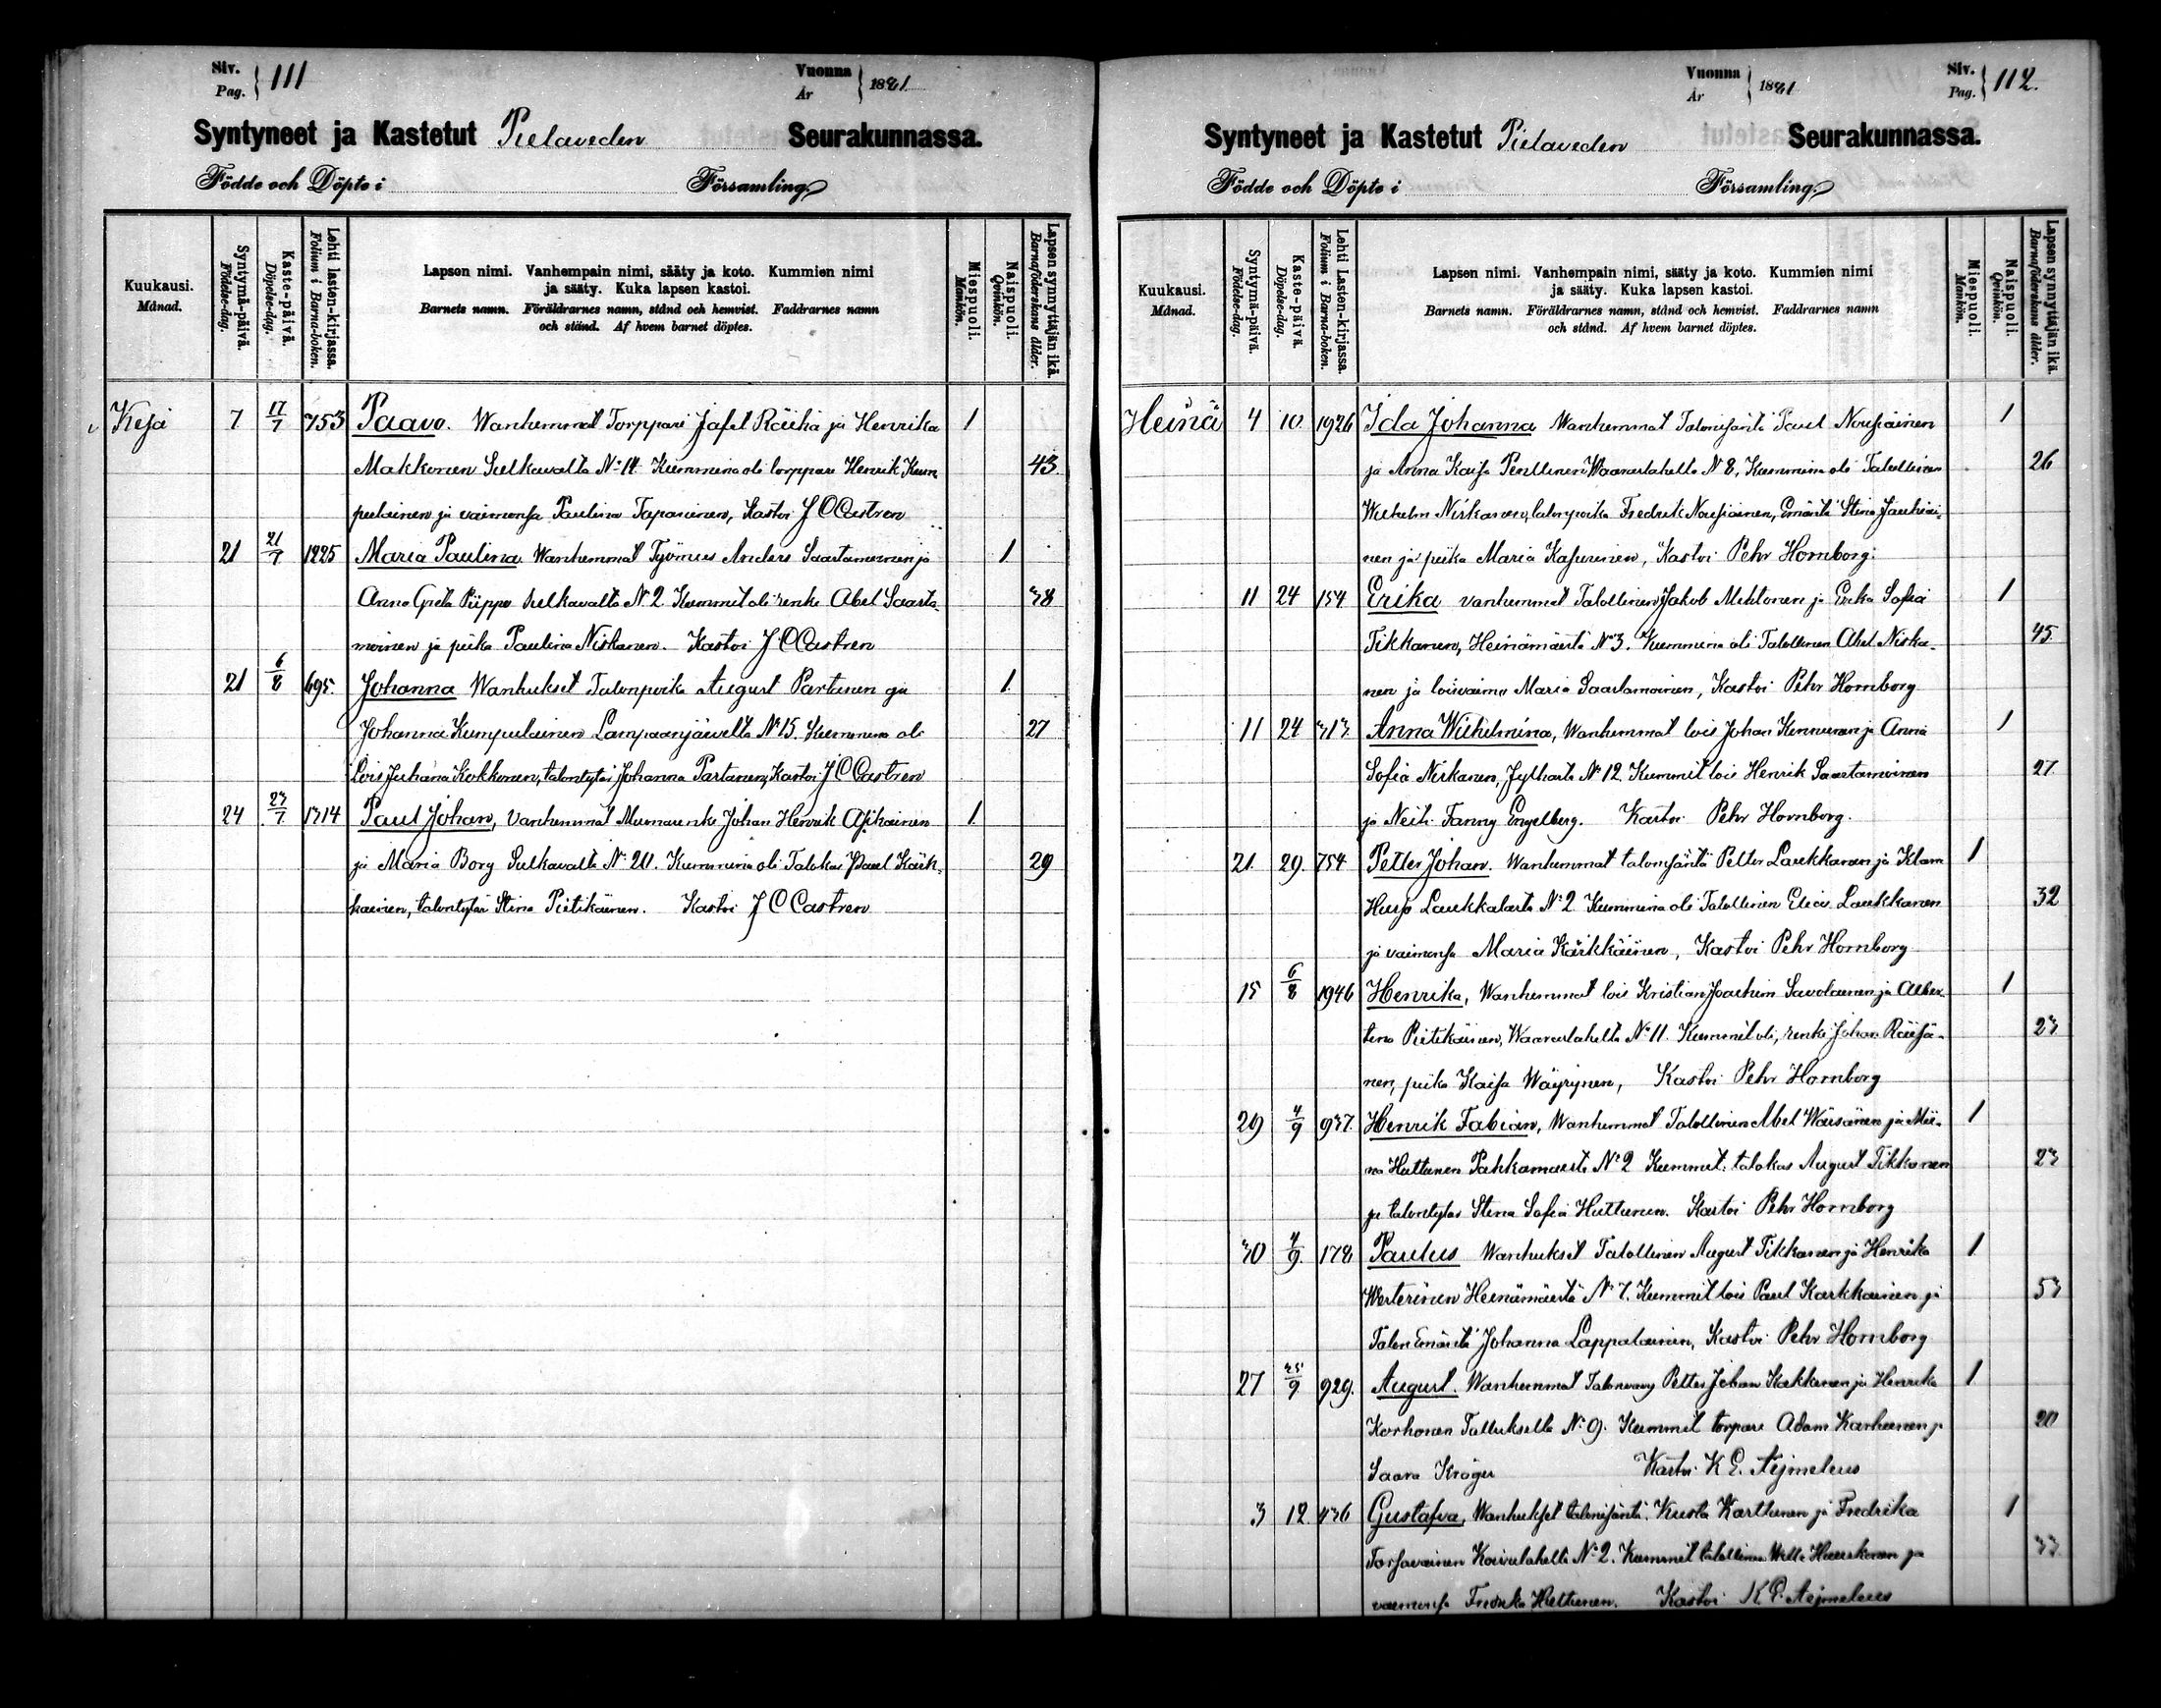 Siv.
Pag. } 111
Vuonna
År } 1881.
Syntyneet ja Kastetut Pielaveden Seurakunnassa.
Födde och Döpte i Församling.
Kuukausi.
Månad.
Syntymä-päivä.
Födelse-dag.
Kaste-päivä.
Döpelse-dag.
Lehti lasten-kirjassa.
Folium i Barna-boken.
Lapsen nimi. Vanhempain nimi, sääty ja koto. Kummien nimi
ja sääty. Kuka lapsen kastoi.
Barnets namn. Föräldrarnes namn, stånd och hemvist. Faddrarnes namn
och stånd. Af hvem barnet döptes.
Miespuoli.
Mankön.
Naispuoli.
Qvinkön.
Lapsen synnyttäjän ikä.
Barnaföderskans ålder.
Kesä 7 17/7 753 Paavo. Wanhemmat Torppari Jafet Räihä ja Henrika 1
Makkonen Sulkavalta No 14 Kummina oli torppari Henrik Kum 43
pulainen ja vaimonsa Paulina Tapaninen, Kastoi J C Castren
21 21/7 1225 Maria Paulina. Wanhemmat Työmies Anders Saastamoinen ja 1
Anna Greta Piippo Sulkavalta No 2 Kummit oli renki Abel Saasta- 38
moinen ja piika Paulina Niskanen. Kastoi J C Castren
21 6/8 695. Johanna Wanhukset Talonpoika August Partanen ja 1.
Johanna Kumpulainen Lampaanjärveltä No 15. Kummina oli 27
Lois Juhana Kokkonen, talontytär Johanna Partanen, Kastoi J C Castren
24 23/7 1314 Paul Johan, Vanhemmat Muonarenki Johan Henrik Asikainen 1.
ja Maria Borg Sulkavalta No 20. Kummina oli Talokas Paul Kärk- 29
kainen, talontytär Stina Pietikäinen. Kastoi J C Castren
Vuonna
År } 1881
Siv.
Pag. } 112.
Syntyneet ja Kastetut Pielaveden Seurakunnassa.
Födde och Döpte i Församling.
Kuukausi.
Månad.
Syntymä-päivä.
Födelse-dag.
Kaste-päivä.
Döpelse-dag.
Lehti Lasten-kirjassa.
Folium i Barna-boken.
Lapsen nimi. Vanhempain nimi, sääty ja koto. Kummien nimi
ja sääty. Kuka lapsen kastoi.
Barnets namn. Föräldrarnes namn, stånd och hemvist. Faddrarnes namn
och stånd. Af hvem barnet döptes.
Miespuoli.
Mankön.
Naispuoli.
Qvinkön.
Lapsen synnyttäjän ikä.
Barnaföderskans ålder.
Heinä 4 10. 1926 Ida Johanna Wanhemmat Talonisäntä Paul Nousiainen 1
ja Anna Kaisa Penttinen Waaraslahelta N 8, Kummina oli Talollinen 26
Wilhelm Niskanen, talonpoika Fredrik Nousiainen, Emäntä Stina Jauhiai-
nen ja piika Maria Kasurinen, Kastoi Pehr Hornborg.
11 24 154 Erika vanhemmat Talollinen Jakob Mehtonen ja Erika Sofia 1
Tikkanen, Heinämäestä No 3. Kummina oli Talollinen Abel Niska- 45
nen ja loisvaimo Maria Saastamoinen, Kastoi Pehr Hornborg
11 24 313 Anna Wilhelmina, Wanhemmat lois Johan Kinnunen ja Anna 1
Sofia Niskanen, Jylhästä No 12 Kummit lois Henrik Saastamoinen 27
ja Neiti Fanny Engelberg. Kastoi Pehr Hornborg.
21. 29. 754 Petter Johan. Wanhemmat talonisäntä Petter Laukkanen ja Klara 1
Hujo Laukkalasta No 2 Kummina oli Talollinen Elias Laukkanen 32
ja vaimonsa Maria Kärkkäinen, Kastoi Pehr Hornborg
15 6/8 1946 Henrika, Wanhemmat lois Kristian Joachim Savolainen ja Alber- 1
tina Pietikäinen, Waaraslahelta No 11. Kummit oli, renki Johan Räisä- 23
nen, piika Kaisa Wäyrynen, Kastoi Pehr Hornborg
29 4/9 937. Henrik Fabian, Wanhemmat Talollinen Abel Wäisänen ja Mii- 1
na Huttunen Pahkamäestä No 2 Kummit: talokas August Tikkanen 23
ja talontytär Stina Sofia Huttunen. Kastoi Pehr Hornborg
30 4/9. 178 Paulus Wanhukset Talollinen August Tikkanen ja Henrika 1
Westerinen Heinämäestä No 7. Kummit lois Paul Karkkainen ja 53
Talon Emäntä Johanna Lappalainen, Kastoi Pehr Hornborg
27 25/9 929. August. Wanhemmat Talonvävy Petter Johan Kakkonen ja Henrika 1.
Korhonen Tallukselta No 9. Kummit torpari Adam Karhunen ja 20
Saara Kröger Kastoi K E. Aejmeleus
3 12. 436 Gustafva, Wanhukset talonisäntä Kusta Karttunen ja Fredrika 1
Torssavainen Koivulahelta No 2. Kummit talollinen Wille Hauskonen ja 33
vaimonsa Fredrika Huttunen. Kastoi K E. Aejmeleus